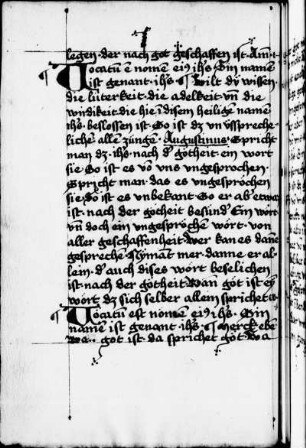 legen · der nach got geschaffen ist · Am ·
Uocatū ē nomē eiꝰ ihs · Sin namē
ist genant · ihs · wilt dv wissen
die luterkeit · die adelkeit · vn̄ die
wirdikeit · die hie ī disem heiligen namē
ihs · beslossen ist · So ist dz vnvsspreche-
liche allen zunge · Augustinus · Spricht
man dz · ihs · nach dˀ gotheit · ein wort
sie · So ist es vō vns vngesprochen ·
Spricht man · das es vngesprochen
sie · So ist es vnbekant · So er ab etwas
ist · nach der gotheit · Ein wort ·
vn̄ doch ein vngesprochē wort · von
aller geschaffenheit · wer kan es dāne
gespreche · danne er al-
lein · dˀ auch dises wort
ist · nach der gotheit · Wan got ist ey
wort · dz sich selber allein sprichet
Uocatū est nomē eiꝰ ihs · Sin
namē ist genant · ihs · merck ebē
got ist da sprichet got